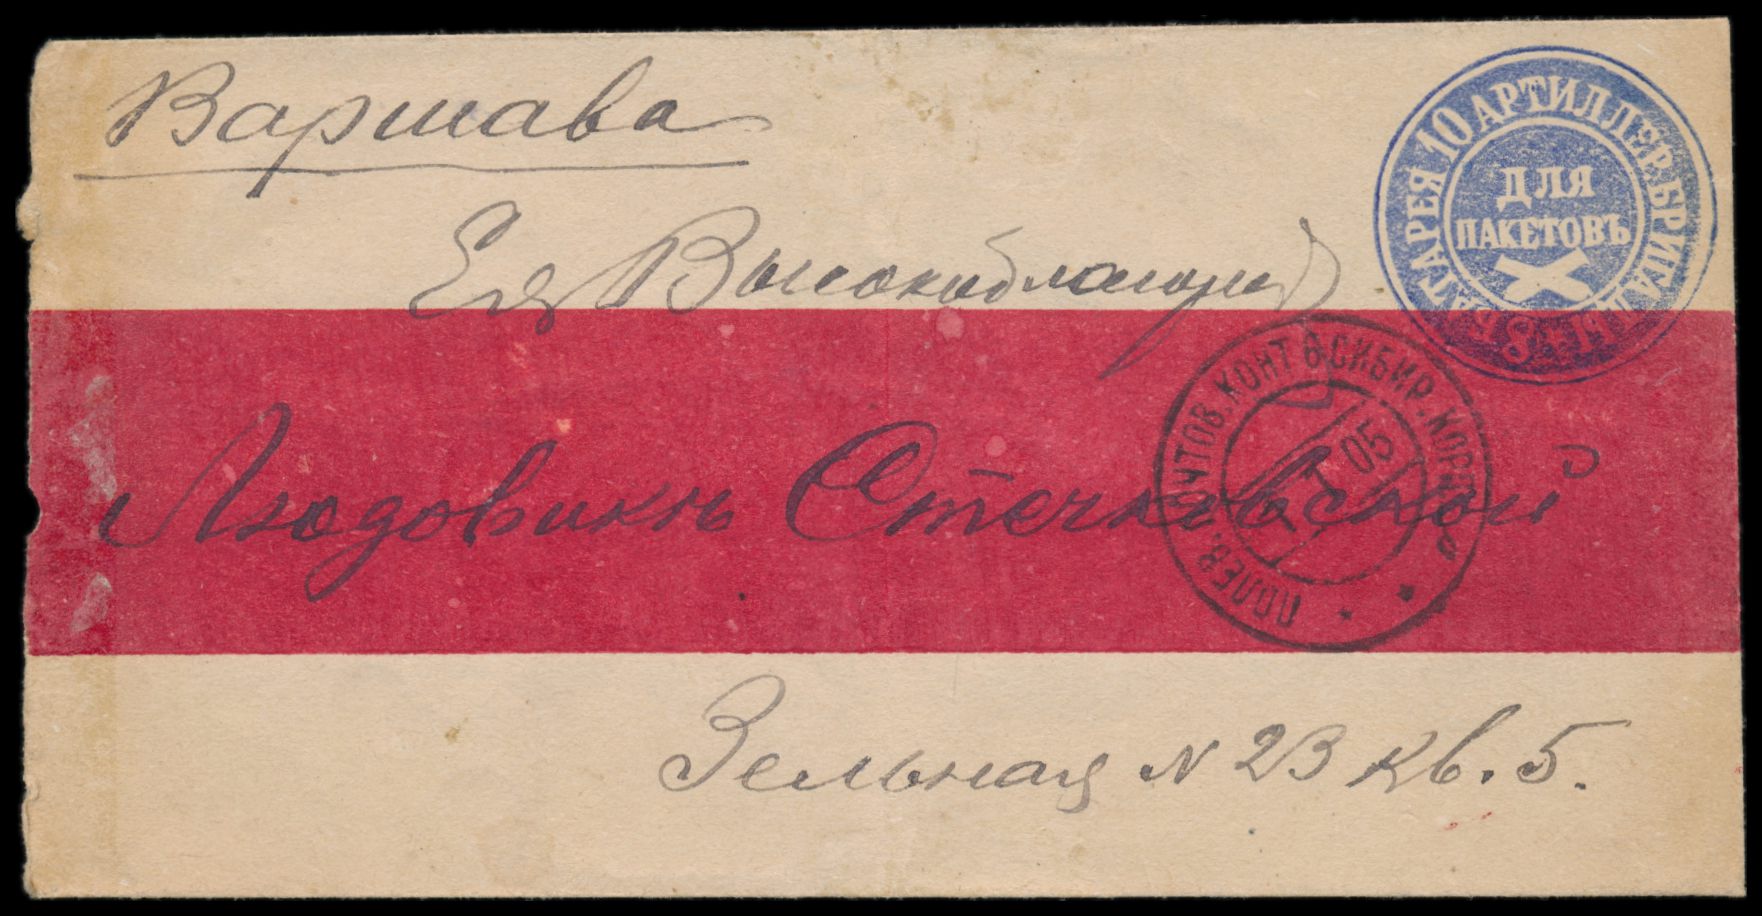 Варшава
Ея Высокоблагород
Людовикѣ Стечковской
Зельная N 23 кв. 5.
8 БАТАРЕЯ 10 АРТИЛЛЕР. БРИГАДЫ
ДЛЯ
ПАКЕТОВЪ
ПОЛЕВ. ПОЧТОВ. КОНТ 6 СИБИР. КОРП.
05